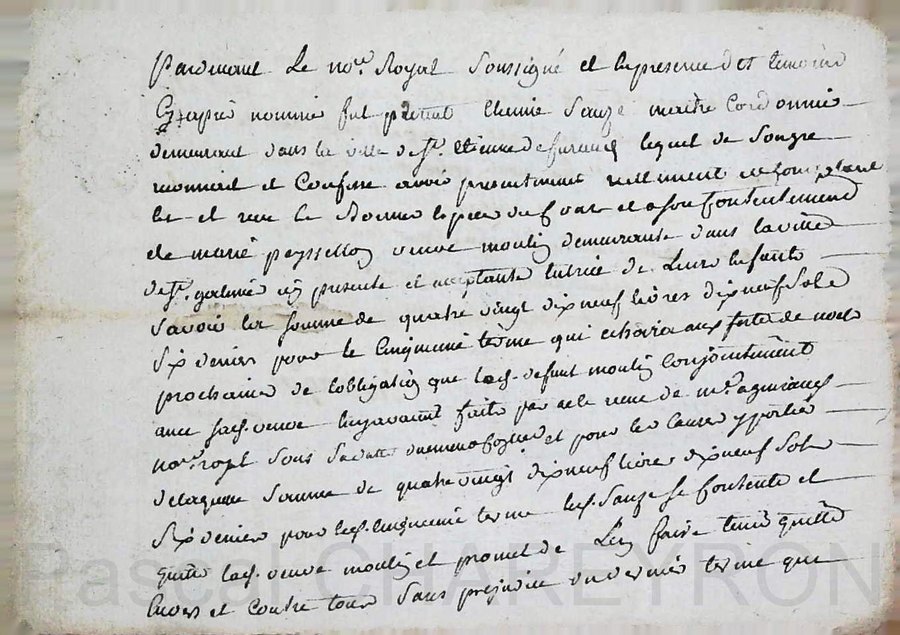 Pardevant Le no.re Royal Soussigné et en presence des temoins
Cy apres nommé fut present Etienne Sauze maitre Cordonnier
demeurant dans la ville de St. Etienne de furand lequel de Son gre
reconnoit et Confesse avoir presentement reellement
et reçu
de marie peyssellon veuve moulin demeurante dans la ville
de St. galmier icy presente et acceptante tutrice de Leurs Enfants
Savoir la somme de quatre vingt dix neuf livres dix neuf Sols
Six deniers pour le Cinquieme terme qui echoira aux fetes de noel
prochaine de lobligation que led. defunt moulin Conjointement
avec lad. veuve luy avoient faite par acte recu de me.
no.re royal sous Sa datte et pour les Causes y portées
de laquelle Somme de quatre vingt dix neuf livres dix neuf Sols
Six deniers pour led. Cinquieme terme led. Sauze Se Contente et
quitte lad. veuve moulin et promet de Len faire tenir quitte
Envers et Contre tous Sans prejudice du dernier terme qui
Pascal CHAREYRON